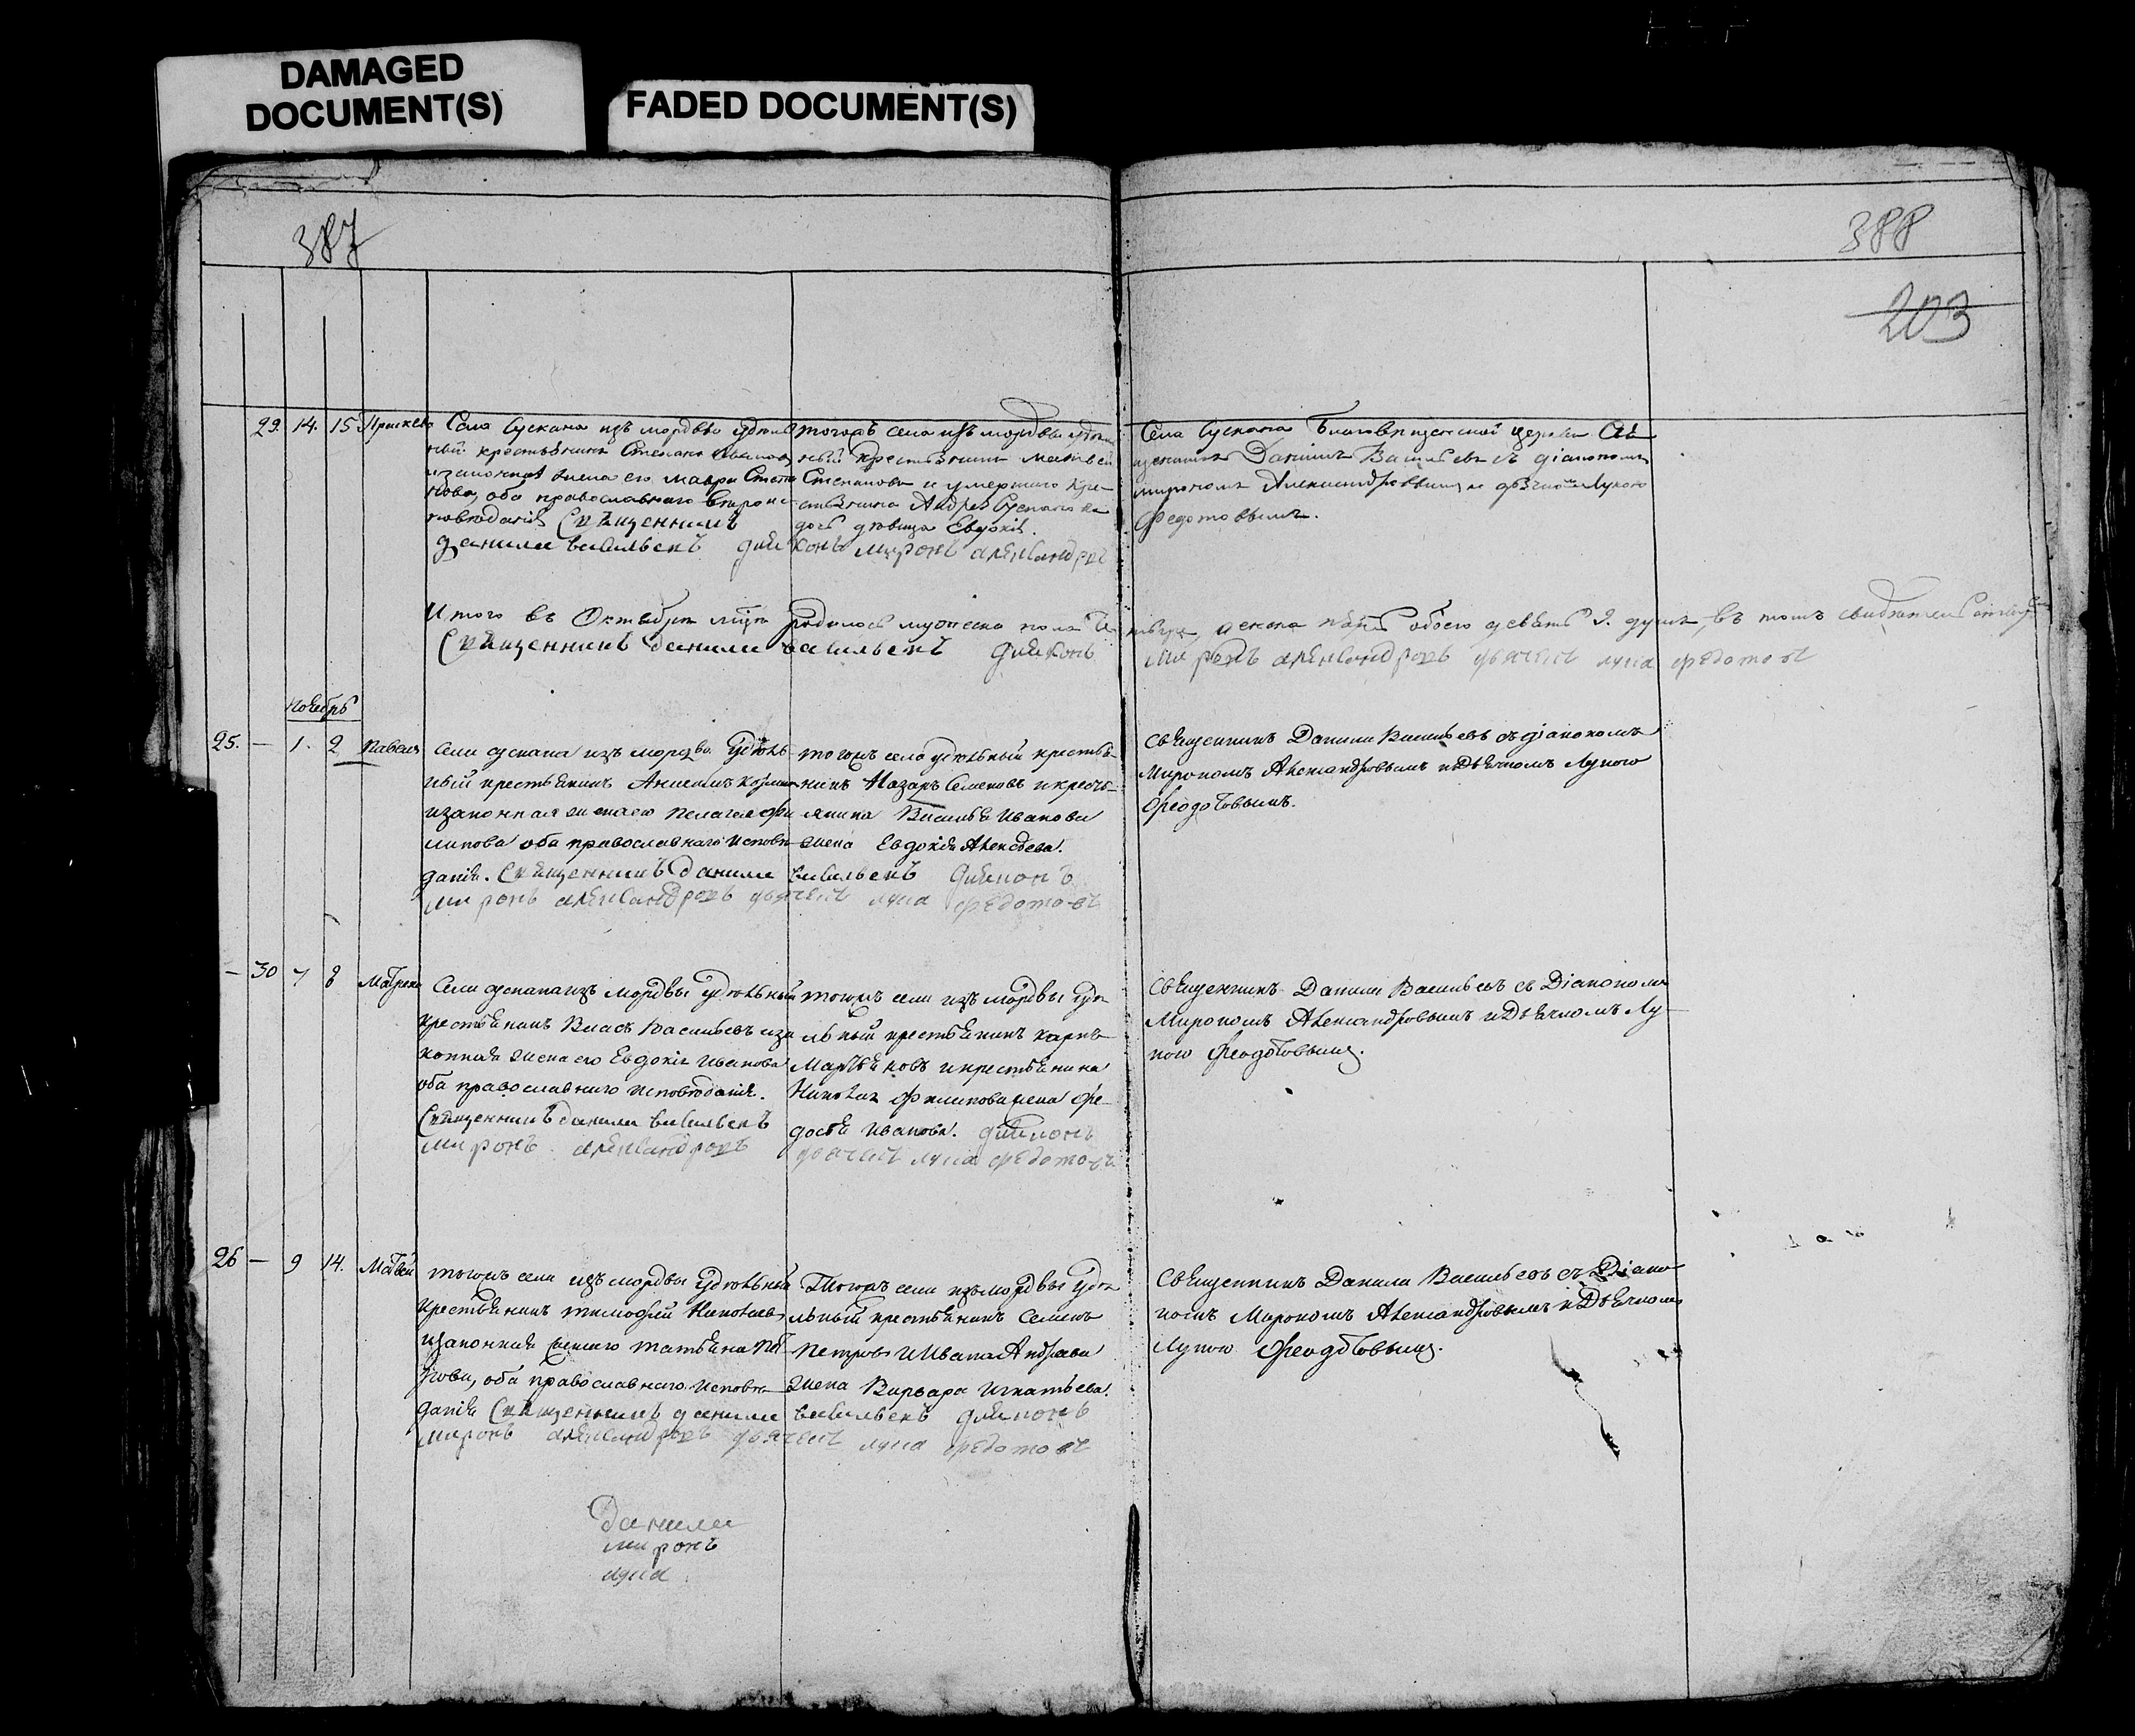 DAMAGED
DOCUMENT(S)
FADED DOCUMENT(S)
387
388
203
29. 14. 15 Села Сускана изъ мордвы удѣль
ный крестьянинъ Степанъ
и законная жена его Мавра Степа
нова, оба православнаго вѣроис
повѣданія Священникъ
данила васильевъ
тогожъ села изъ мордвы удѣль
ный крестьянинъ Матвей
Степановъ и умершаго кре
стьянина Андрея
дочь дѣвица Евдокія.
диаконъ миронъ александровъ
Села Сускана Благовещенской церкви Свя
щенникъ Даниилъ Васильевъ съ діакономъ
Мирономъ Александровымъ и дьячкомъ Лукою
Федотовымъ.
Итого въ Октябрѣ родилось мужеска пола
женска обоего девять 9. душъ, въ томъ свидѣтельствуемъ
Священникъ данила васильевъ диаконъ
миронъ александровъ дьячекъ лука федотовъ
Ноябрь
25. — 1. 2 Павелъ
Села сускана изъ мордвы Удѣль
ный крестьянинъ Анисимъ
и законная жена его Пелагея Фи
липова оба православнаго исповѣ
данія. Священникъ данила васильевъ диаконъ
миронъ александровъ дьячекъ лука федотовъ
тогожъ села удѣльный крестья
нинъ Назаръ Семеновъ и кресть
янина Василья Иванова
жена Евдокія Алексѣева.
Священникъ Данила Васильевъ съ діакономъ
Мирономъ Александровымъ и Дьячкомъ Лукою
Феодотовымъ.
— 30 7 8 Матрена
Села сускана изъ мордвы Удѣльный
крестьянинъ Власъ Васильевъ и за
конная жена его Евдокія Иванова
оба православнаго исповѣданія.
Священникъ данила васильевъ
миронъ александровъ
тогожъ села изъ мордвы удѣ
льный крестьянинъ Карпъ
Мартьяновъ и крестьянина
Николая Филипова жена Фе
досья Иванова. диаконъ
дьячекъ лука федотовъ
Священникъ Данила Васильевъ съ Діакономъ
Мирономъ Александровымъ и Дьячкомъ Лу
кою Феодотовымъ.
26 — 9 14. Матвей
тогожъ села изъ мордвы Удѣльный
крестьянинъ Тимофей Николаевъ
и законная жена его Татьяна Пет
рова, оба православнаго исповѣ
данія Священникъ данила васильевъ диаконъ
миронъ александровъ дьячекъ лука федотовъ
Тогожъ села изъ мордвы удѣ
льный крестьянинъ Семенъ
Петровъ и Ивана Андреева
жена Варвара Игнатьева.
Священникъ Данила Васильевъ съ Діако
номъ Мирономъ Александровымъ и Дьячкомъ
Лукою Феодотовымъ.
Данила
миронъ
лука